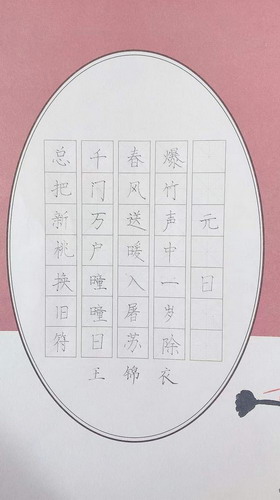 元日
爆竹声中一岁除
春风送暖入屠苏
千门万户曈曈日
总把新桃换旧符
王锦衣